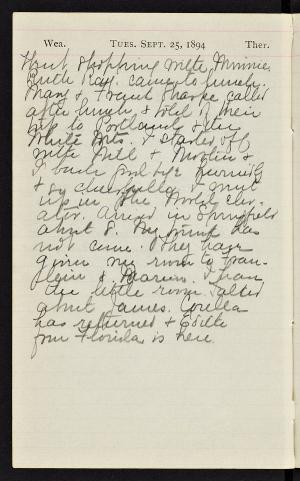 Wea. TUES. SEPT. 25, 1894 Ther.
Went shopping with Minnie.
Ruth Ray. came to lunch.
Mary & Frank Sharpe called
after lunch & told of their
trip to Portland & the
White Mts. I started off
with Will &
I bade good bye
& so cheerfully & went
up in the
Arrived in Springfield
about 8. My trunk has
not come. They have
given my room to Fran-
klin & Marion. I have
the little room. Talked
about James. Corella
has returned & Edith
from Florida is here.